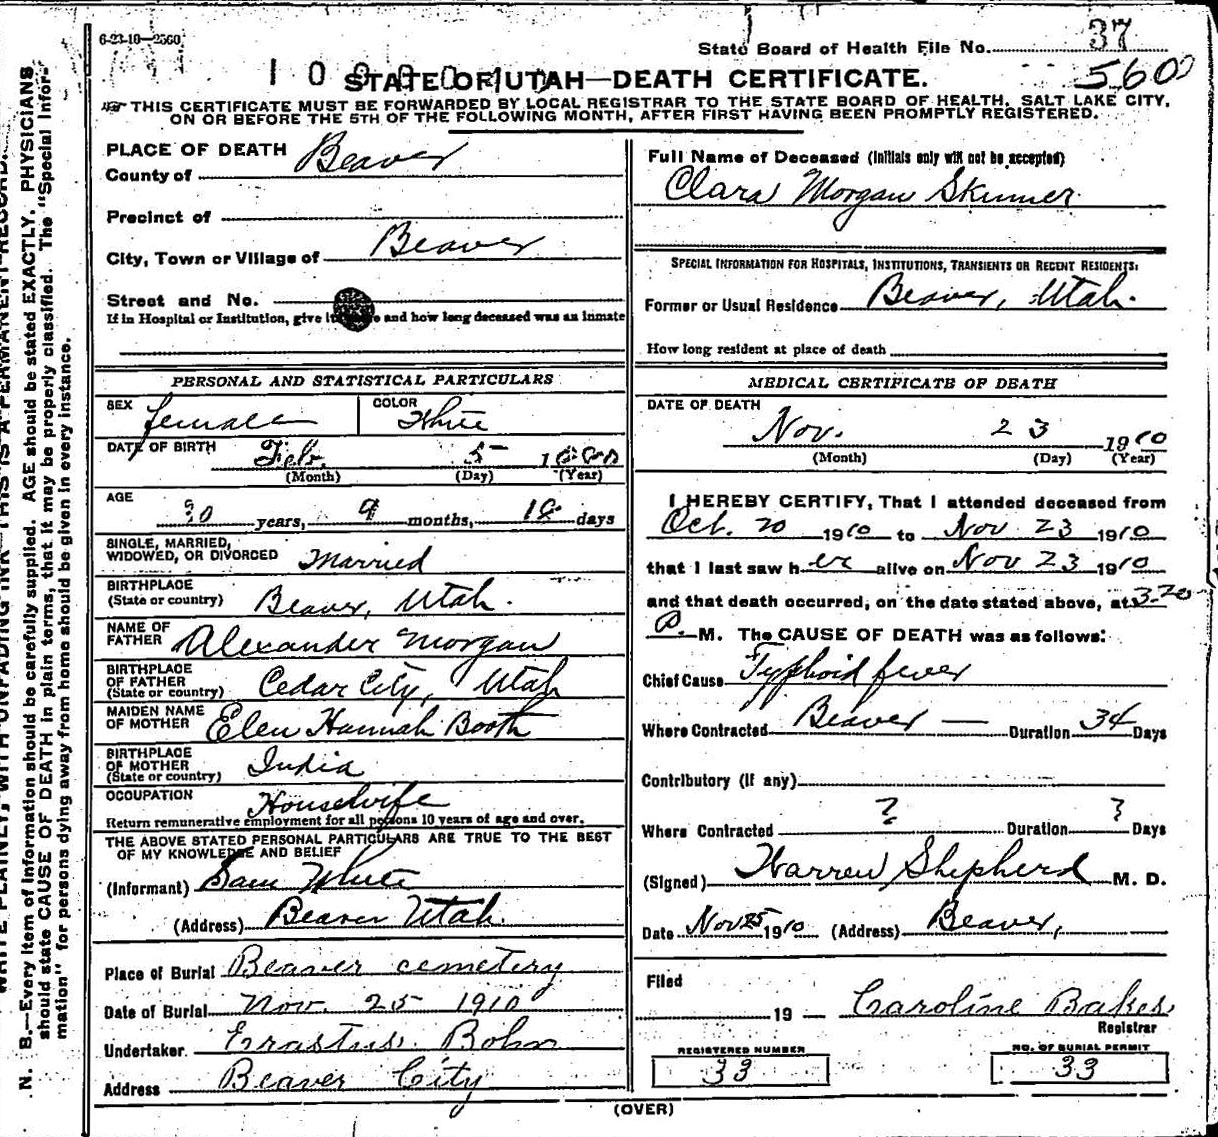 6-23-10—2560
State Board of Health File No. 37
5600
STATE OF UTAH—DEATH CERTIFICATE.
THIS CERTIFICATE MUST BE FORWARDED BY LOCAL REGISTRAR TO THE STATE BOARD OF HEALTH, SALT LAKE CITY,
ON OR BEFORE THE 5TH OF THE FOLLOWING MONTH, AFTER FIRST HAVING BEEN PROMPTLY REGISTERED.
PLACE OF DEATH
County of Beaver
Precinct of
City, Town or Village of Beaver
Street and No.
If in Hospital or Institution, give its and how long deceased was an inmate
PERSONAL AND STATISTICAL PARTICULARS
SEX female COLOR White
DATE OF BIRTH Feb. 5
(Month) (Day) (Year)
AGE
30 years, 9 months, 18 days
SINGLE, MARRIED,
WIDOWED, OR DIVORCED Married
BIRTHPLACE
(State or country) Beaver, Utah.
NAME OF
FATHER Alexander Morgan
BIRTHPLACE
OF FATHER
(State or country) Cedar City, Utah
MAIDEN NAME
OF MOTHER Elen Hannah Booth
BIRTHPLACE
OF MOTHER
(State or country) India
OCCUPATION Housewife
Return remunerative employment for all persons 10 years of age and over.
THE ABOVE STATED PERSONAL PARTICULARS ARE TRUE TO THE BEST
OF MY KNOWLEDGE AND BELIEF
(Informant) Sam White
(Address) Beaver Utah.
Place of Burial Beaver cemetery
Date of Burial Nov. 25 1910
Undertaker Erastus Bohn
Address Beaver City
Full Name of Deceased (Initials only will not be accepted)
Clara Morgan Skinner
SPECIAL INFORMATION FOR HOSPITALS, INSTITUTIONS, TRANSIENTS OR RECENT RESIDENTS:
Former or Usual Residence Beaver, Utah.
How long resident at place of death
MEDICAL CERTIFICATE OF DEATH
DATE OF DEATH
Nov. 23 1910
(Month) (Day) (Year)
I HEREBY CERTIFY, That I attended deceased from
Oct. 20 1910 to Nov 23 1910
that I last saw her alive on Nov 23 1910
and that death occurred, on the date stated above, at 3-20
P. M. The CAUSE OF DEATH was as follows:
Chief Cause Typhoid fever
Where Contracted Beaver — Duration 34 Days
Contributory (if any)
Where Contracted ? Duration ? Days
(Signed) Warren Shepherd M. D.
Date Nov 25 1910 (Address) Beaver,
Filed
19 — Caroline Bakes
Registrar
REGISTERED NUMBER
33
NO. OF BURIAL PERMIT
33
(OVER)
N. B.—Every item of information should be carefully supplied. AGE should be stated EXACTLY. PHYSICIANS
should state CAUSE OF DEATH in plain terms, that it may be properly classified. The "Special Infor-
mation" for persons dying away from home should be given in every instance.